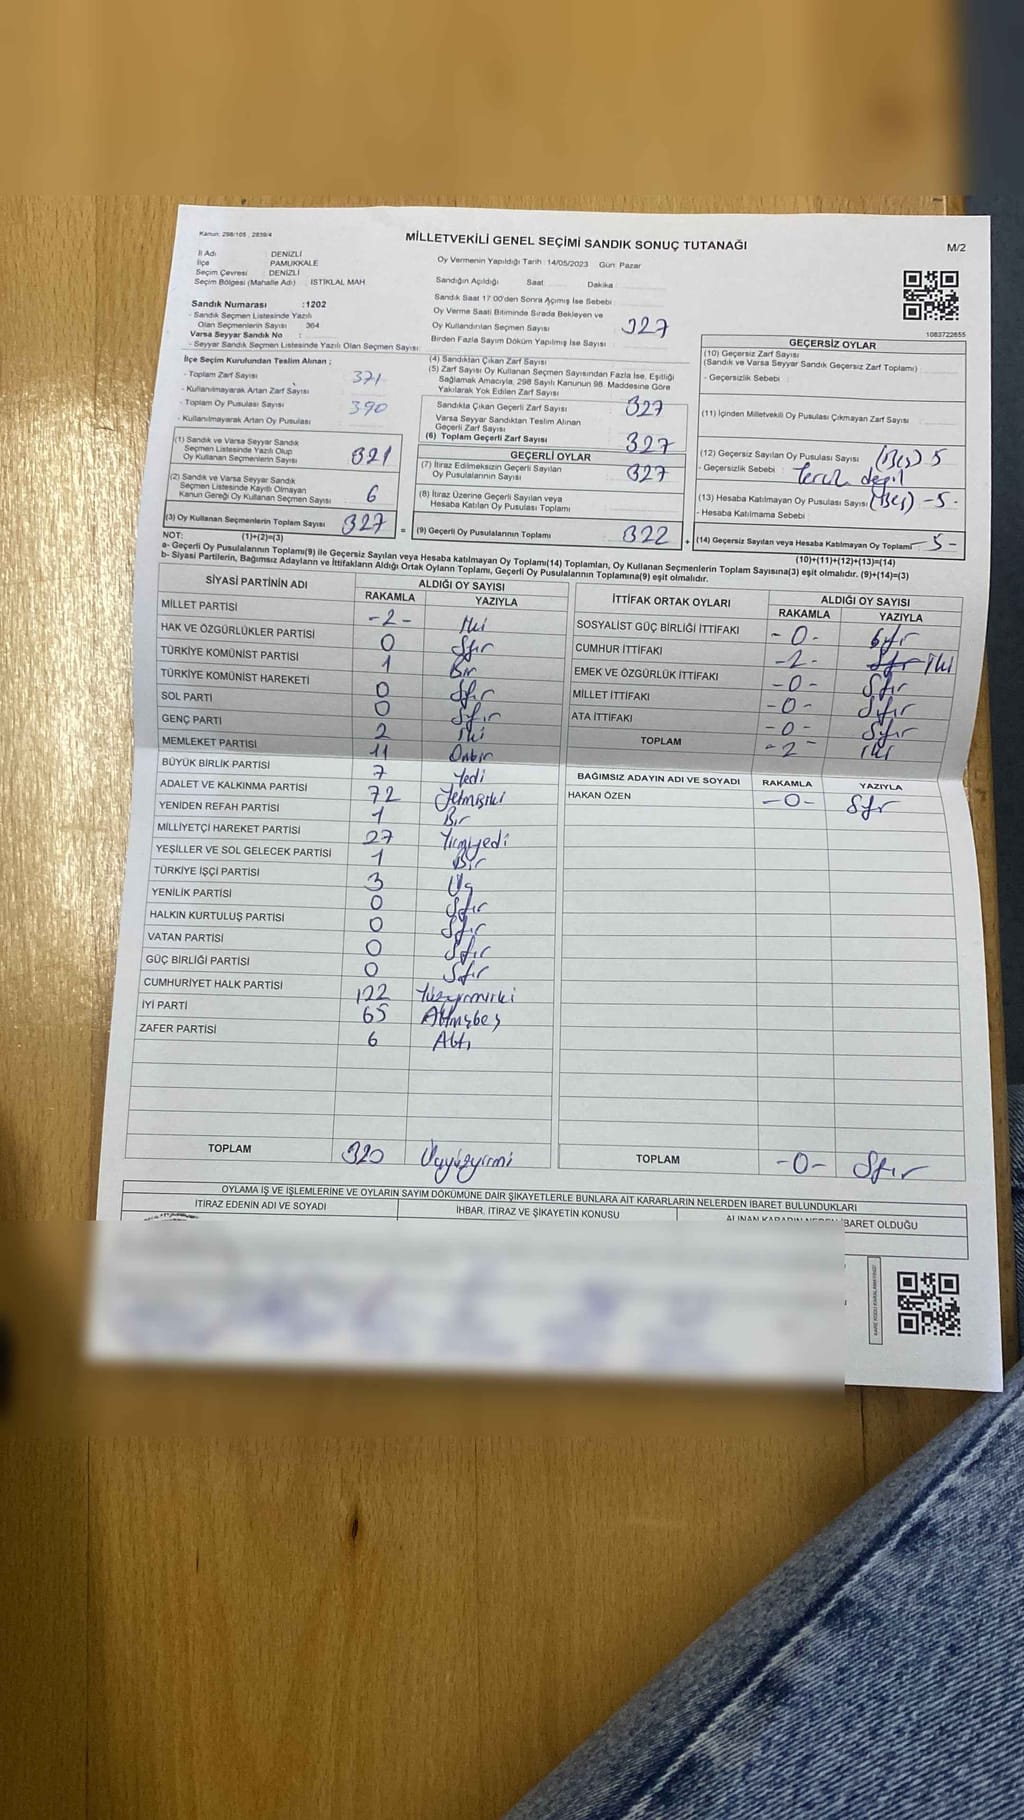 Kanun: 298/105 , 2839/4
MİLLETVEKİLİ GENEL SEÇİMİ SANDIK SONUÇ TUTANAĞI
M/2
İl Adı DENİZLİ
İlçe PAMUKKALE
Seçim Çevresi DENİZLİ
Seçim Bölgesi (Mahalle Adı) : ISTİKLAL MAH
Oy Vermenin Yapıldığı Tarih : 14/05/2023 Gün: Pazar
Sandığın Açıldığı Saat Dakika
Sandık Saat 17:00'den Sonra Açımış İse Sebebi
Oy Verme Saati Bitiminde Sırada Bekleyen ve
Oy Kullandırılan Seçmen Sayısı 327
Birden Fazla Sayım Döküm Yapılmış İse Sayısı
1083722655
Sandık Numarası :1202
- Sandık Seçmen Listesinde Yazılı
Olan Seçmenlerin Sayısı 364
Varsa Seyyar Sandık No :
- Seyyar Sandık Seçmen Listesinde Yazılı Olan Seçmen Sayısı
İlçe Seçim Kurulundan Teslim Alınan ;
- Toplam Zarf Sayısı 371
- Kullanılmayarak Artan Zarf Sayısı
- Toplam Oy Pusulası Sayısı 390
- Kullanılmayarak Artan Oy Pusulası
(1) Sandık ve Varsa Seyyar Sandık
Seçmen Listesinde Yazılı Olup
Oy Kullanan Seçmenlerin Sayısı 321
(2) Sandık ve Varsa Seyyar Sandık
Seçmen Listesinde Kayıtlı Olmayan
Kanun Gereği Oy Kullanan Seçmen Sayısı 6
(3) Oy Kullanan Seçmenlerin Toplam Sayısı 327 =
(4) Sandıktan Çıkan Zarf Sayısı
(5) Zarf Sayısı Oy Kullanan Seçmen Sayısından Fazla İse, Eşitliği
Sağlamak Amacıyla, 298 Sayılı Kanunun 98. Maddesine Göre
Yakılarak Yok Edilen Zarf Sayısı
Sandıkta Çıkan Geçerli Zarf Sayısı 327
Varsa Seyyar Sandıktan Teslim Alınan
Geçerli Zarf Sayısı
(6) Toplam Geçerli Zarf Sayısı 327
GEÇERLİ OYLAR
(7) İtiraz Edilmeksizin Geçerli Sayılan
Oy Pusulalarının Sayısı 327
(8) İtiraz Üzerine Geçerli Sayılan veya
Hesaba Katılan Oy Pusulası Toplamı
(9) Geçerli Oy Pusulalarının Toplamı 322 +
GEÇERSİZ OYLAR
(10) Geçersiz Zarf Sayısı
(Sandık ve Varsa Seyyar Sandık Geçersiz Zarf Toplamı)
- Geçersizlik Sebebi
(11) İçinden Milletvekili Oy Pusulası Çıkmayan Zarf Sayısı
(12) Geçersiz Sayılan Oy Pusulası Sayısı (Beş) 5
- Geçersizlik Sebebi Tercih değil
(13) Hesaba Katılmayan Oy Pusulası Sayısı (Beş) -5-
- Hesaba Katılmama Sebebi
(14) Geçersiz Sayılan veya Hesaba Katılmayan Oy Toplamı -5-
NOT: (1)+(2)=(3)
(10)+(11)+(12)+(13)=(14)
a- Geçerli Oy Pusulalarının Toplamı(9) ile Geçersiz Sayılan veya Hesaba katılmayan Oy Toplamı(14) Toplamları, Oy Kullanan Seçmenlerin Toplam Sayısına(3) eşit olmalıdır. (9)+(14)=(3)
b- Siyasi Partilerin, Bağımsız Adayların ve İttifakların Aldığı Ortak Oyların Toplamı, Geçerli Oy Pusulalarının Toplamına(9) eşit olmalıdır.
SİYASİ PARTİNİN ADI ALDIĞI OY SAYISI
RAKAMLA YAZIYLA
MİLLET PARTİSİ -2- İki
HAK VE ÖZGÜRLÜKLER PARTİSİ 0 Sıfır
TÜRKİYE KOMÜNİST PARTİSİ 1 Bir
TÜRKİYE KOMÜNİST HAREKETİ 0 Sıfır
SOL PARTİ 0 Sıfır
GENÇ PARTİ 2 İki
MEMLEKET PARTİSİ 11 Onbir
BÜYÜK BİRLİK PARTİSİ 7 Yedi
ADALET VE KALKINMA PARTİSİ 72 Yetmişiki
YENİDEN REFAH PARTİSİ 1 Bir
MİLLİYETÇİ HAREKET PARTİSİ 27 Yirmiyedi
YEŞİLLER VE SOL GELECEK PARTİSİ 1 Bir
TÜRKİYE İŞÇİ PARTİSİ 3 Üç
YENİLİK PARTİSİ 0 Sıfır
HALKIN KURTULUŞ PARTİSİ 0 Sıfır
VATAN PARTİSİ 0 Sıfır
GÜÇ BİRLİĞİ PARTİSİ 0 Sıfır
CUMHURİYET HALK PARTİSİ 122 Yüzyirmiiki
İYİ PARTİ 65 Altmışbeş
ZAFER PARTİSİ 6 Altı
TOPLAM 320 Üçyüzyirmi
İTTİFAK ORTAK OYLARI ALDIĞI OY SAYISI
RAKAMLA YAZIYLA
SOSYALİST GÜÇ BİRLİĞİ İTTİFAKI -0- Sıfır
CUMHUR İTTİFAKI -2- Sıfır İki
EMEK VE ÖZGÜRLÜK İTTİFAKI -0- Sıfır
MİLLET İTTİFAKI -0- Sıfır
ATA İTTİFAKI -0- Sıfır
TOPLAM -2- İki
BAĞIMSIZ ADAYIN ADI VE SOYADI RAKAMLA YAZIYLA
HAKAN ÖZEN -0- Sıfır
TOPLAM -0- Sıfır
OYLAMA İŞ VE İŞLEMLERİNE VE OYLARIN SAYIM DÖKÜMÜNE DAİR ŞİKAYETLERLE BUNLARA AİT KARARLARIN NELERDEN İBARET BULUNDUKLARI
İTİRAZ EDENİN ADI VE SOYADI İHBAR, İTİRAZ VE ŞİKAYETİN KONUSU ALINAN KARARIN NEDEN İBARET OLDUĞU